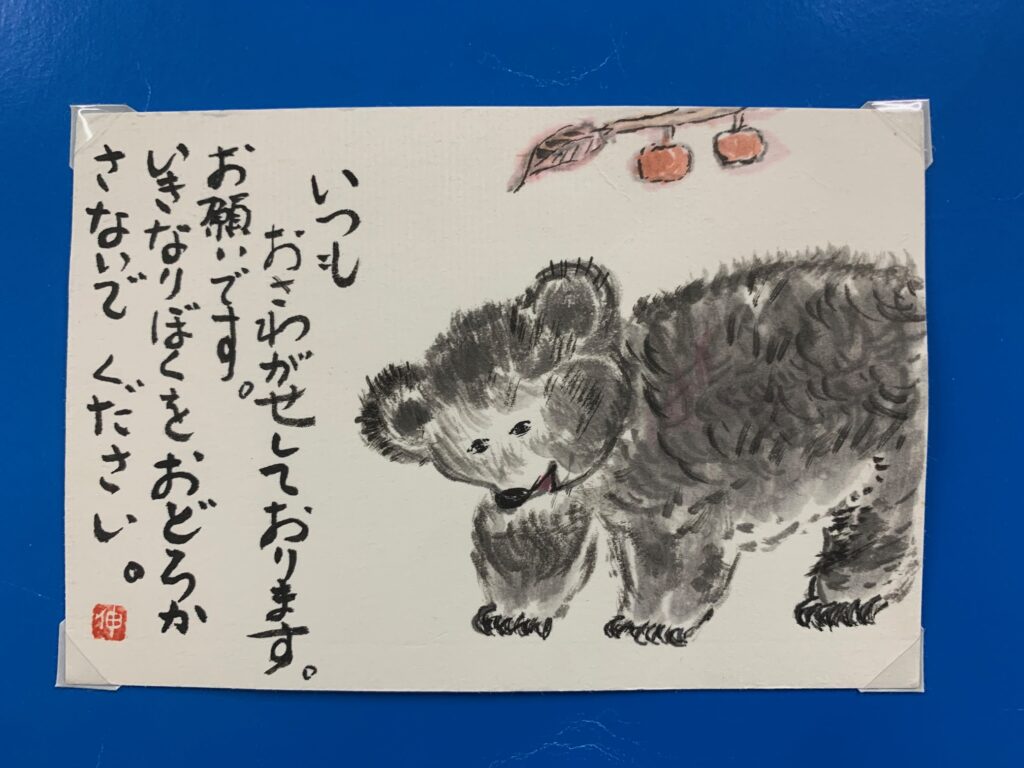 いつも
おさわがせしております。
お願いです。
いきなりぼくをおどろか
さないで ください。
伸